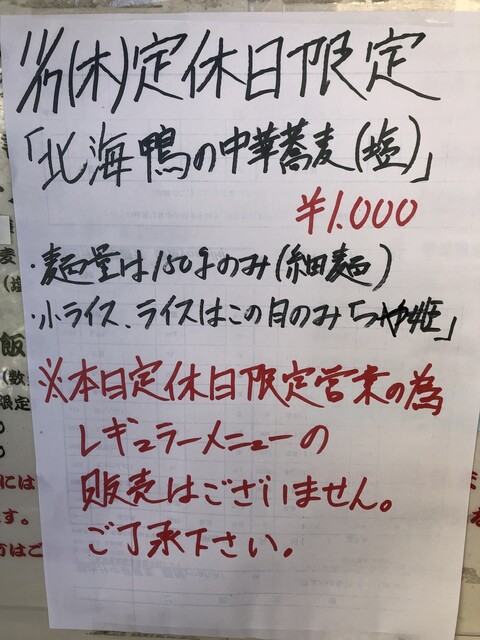 11/7(木)定休日限定
「北海鴨の中華蕎麦(塩)」
¥1.000
・麺量は150gのみ(細麺)
・小ライス、ライスはこの日のみ「つや姫」
※本日定休日限定営業の為
レギュラーメニューの
販売はございません。
ご了承下さい。